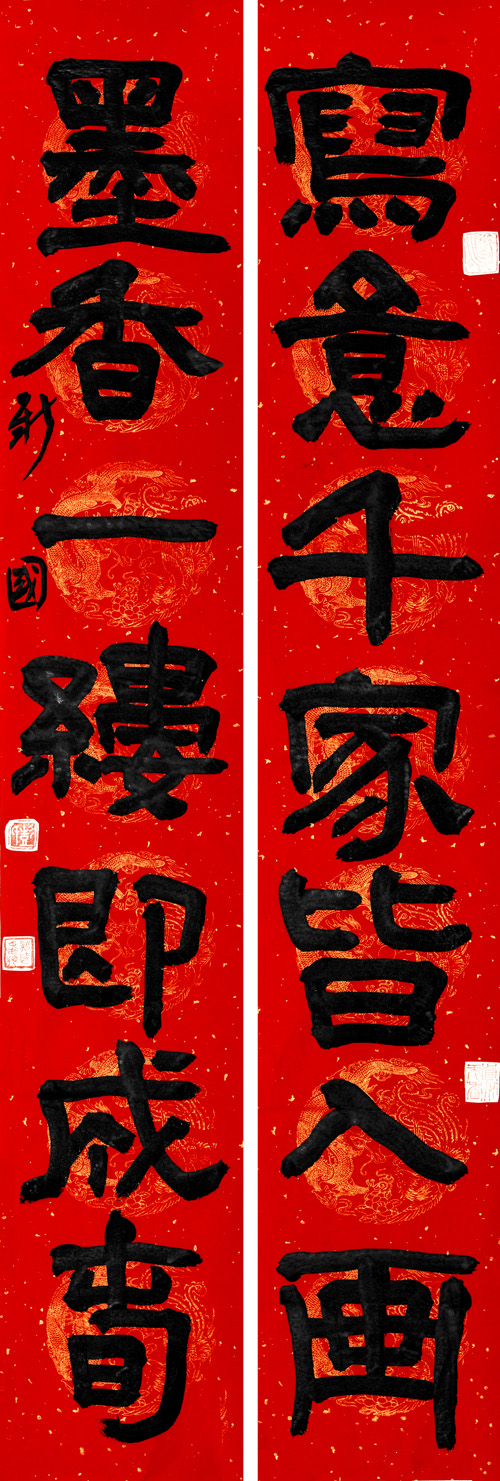 寫意千家皆入画
墨香一縷即成春
新國